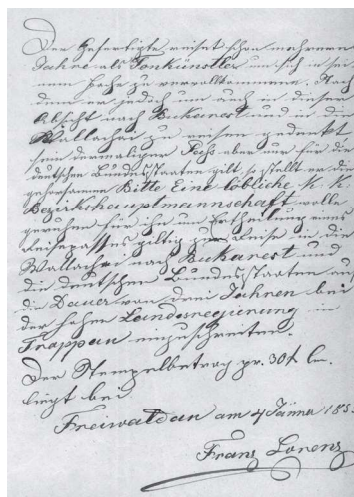 Der Gefertigte reiset schon mehrere
Jahre als Tonkünstler um sich in sei-
nem Fache zu vervollkommnen. Nach
dem er jedoch um auch in dieser
Absicht nach Bukarest und in die
Wallachei zu reisen gedenkt
sein dermaliger Paß aber nur für die
deutschen Bundesstaaten gilt, so stellt er die
gehorsame Bitte Eine löbliche k. k.
Bezirkshauptmannschaft wolle
geruhen für ihn um Ertheilung eines
Reisepasses giltig zur Reise in die
Wallachei nach Bukarest und
die deutschen Bundesstaaten auf
die Dauer von drei Jahren bei
der hohen Landesregierung in
Troppau einzuschreiten.
Der Stempelbetrag pr. 30 x
liegt bei
Freiwaldau am 4 Jänner 185
Franz Lorenz